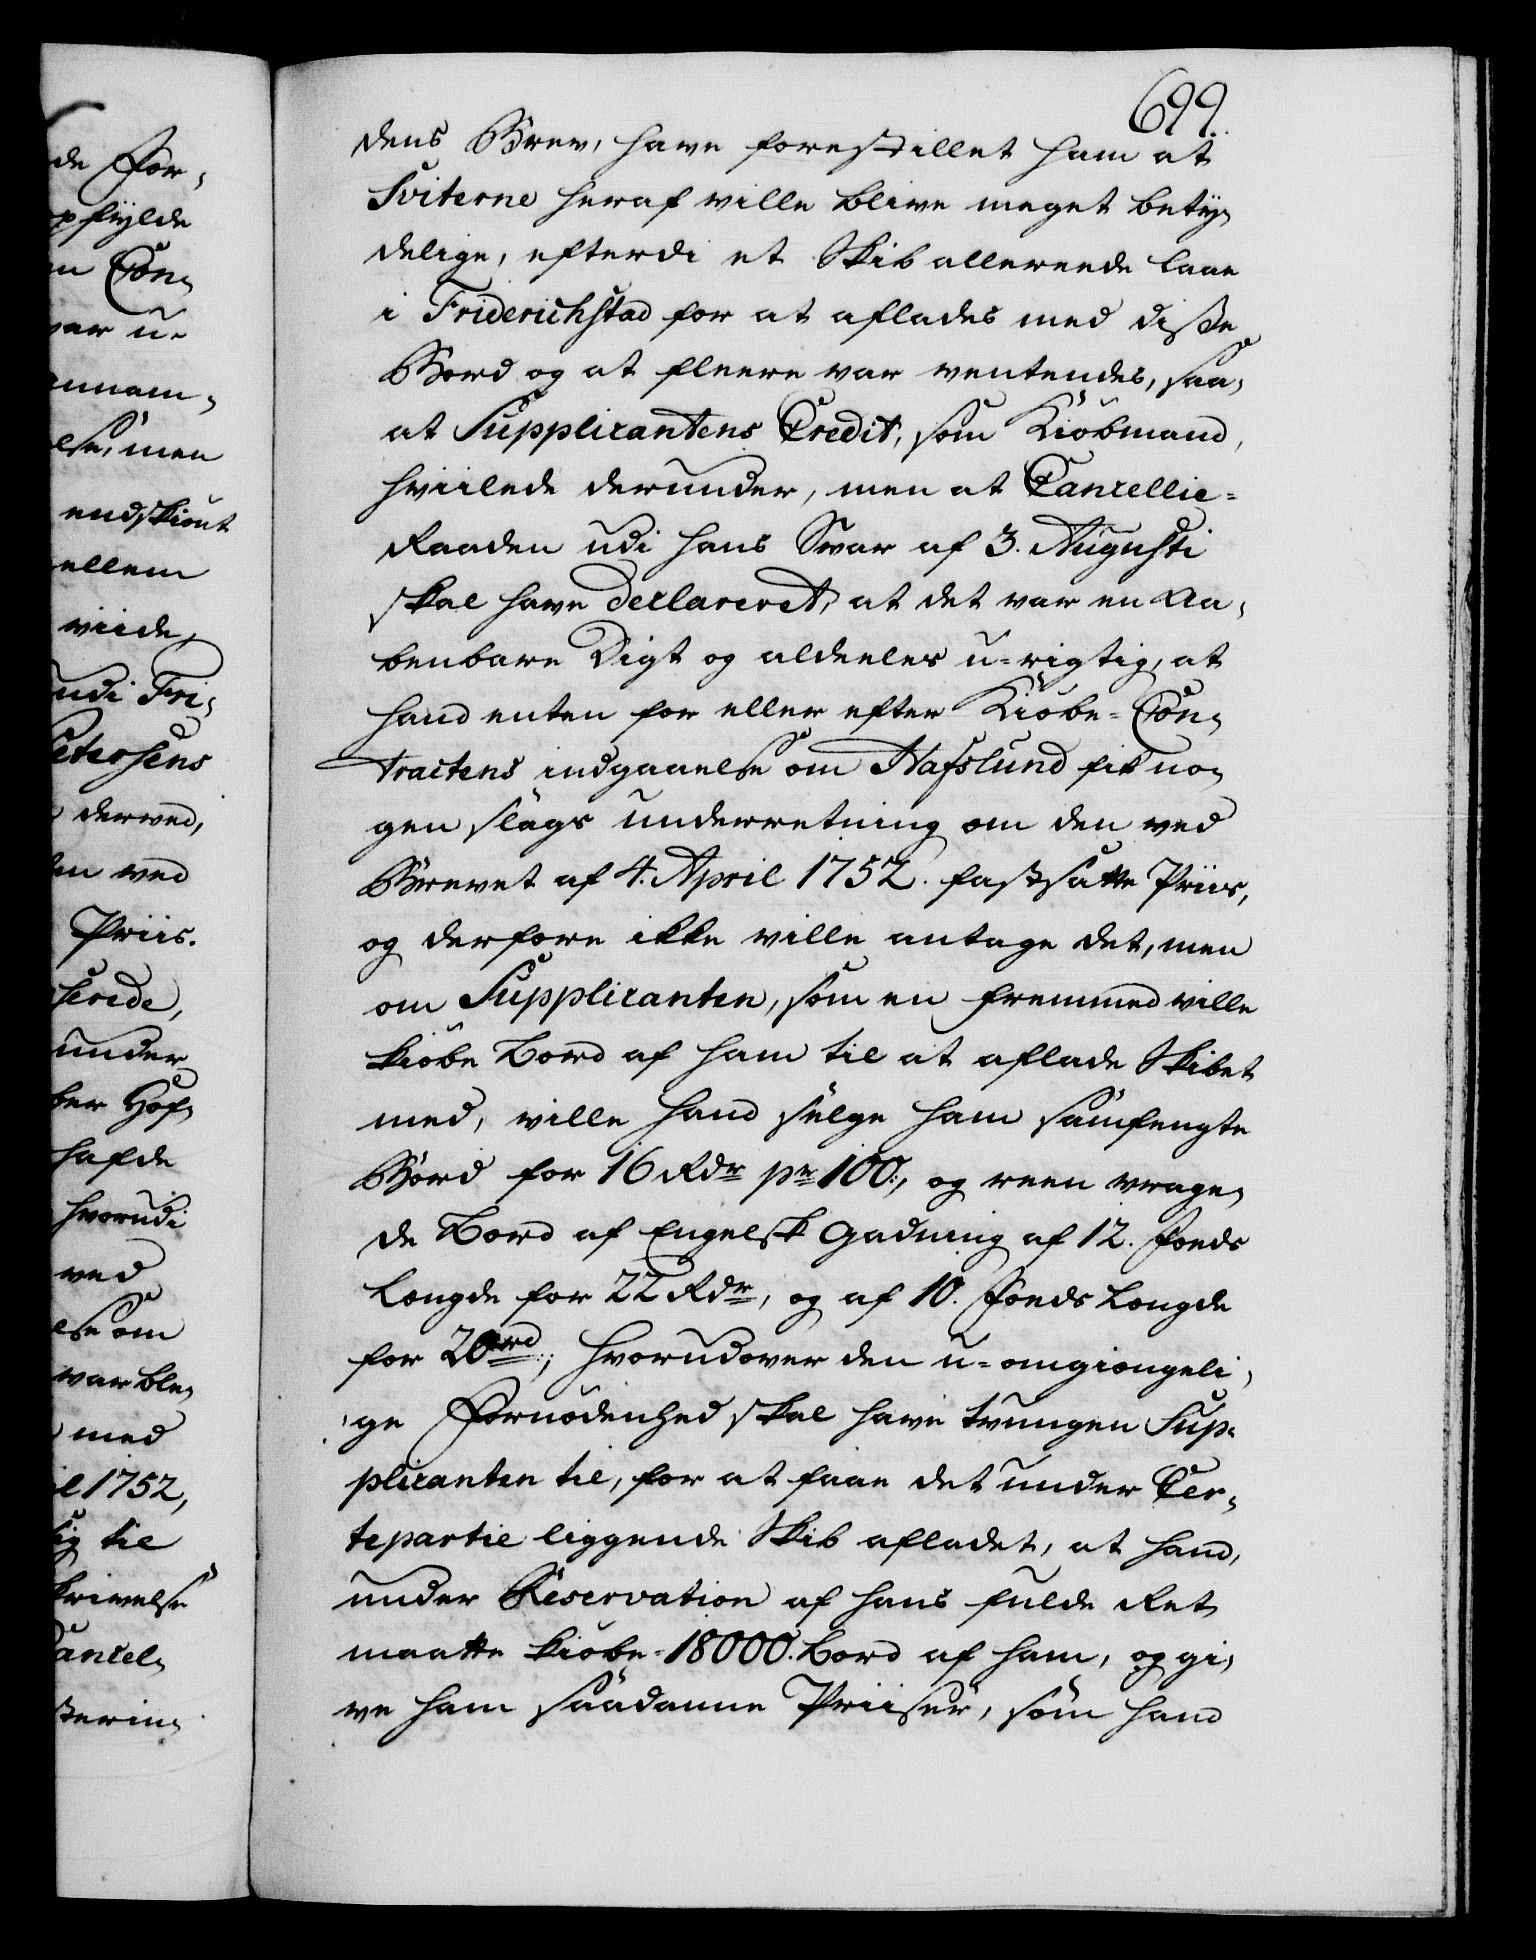 699.
dens Brev, have forestillet ham at
Sviterne heraf ville blive meget bety,
delige, efterdi et Skib allereede laae
i Friderichstad for at aflades med disse
Bord og at fleere var ventendes, saa,
at Supplicantens Credit, som Kiöbmand,
hviilede derunder, men at Cancellie=
Raaden udi hans Svar af 3. Augusti
skal have declareret, at det var en Aa,
benbare Digt og aldeeles u=rigtig, at
hand enten for eller efter Kiöbe=Con,
tractens indgaaelse om Hafslund fik no,
gen slags underretning om den ved
Brevet af 4. April 1752. fastsatte Priis,
og derfore ikke ville antage det, men
om Supplicanten, som en fremmed ville
kiöbe Bord af ham til at aflade Skibet
med, ville hand selge ham samfengte
Bord for 16 Rdr pr 100:, og reen vrage,
de Bord af Engelsk Gadning af 12. Foeds
Længde for 22 Rdr, og af 10. Foeds Længde
for 20 rd:; hvorudover den u=omgiengeli,
ge Fornödenhed skal have tvungen Sup,
plicanten til, for at faae det under Cer,
tepartie liggende Skib afladet, at hand,
under Reservation af hans fulde Ret
maatte kiöbe 18000. Bord af ham, og gi,
ve ham saadanne Priiser, som hand
de For,
pfylde
n Con,
var u=
annam,
else, men
endskiønt
ellem
viide,
udi Fri,
Petersens
derved,
en ved
Priis.
serede,
under
ber Hof,
hafde
hvorudi
ved
else om
var ble,
med
il 1752,
sig til
krivelse
Cancel,
sterin,